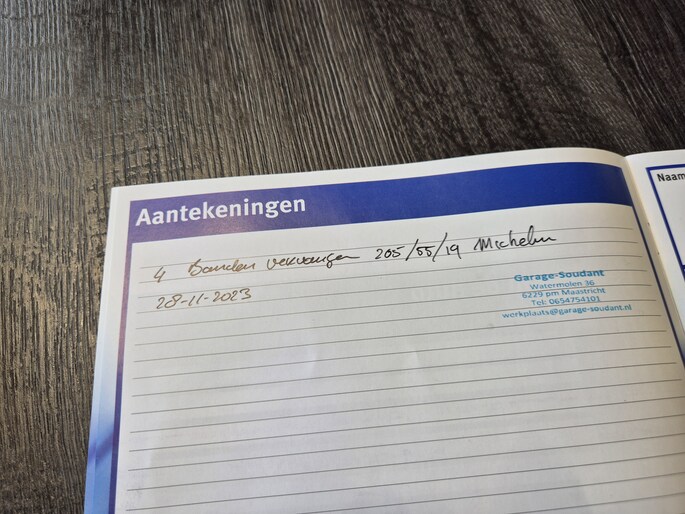 Aantekeningen
Naam
4 Banden vervangen 205/55/19 Michelin
28-11-2023
Garage-Soudant
Watermolen 36
6229 pm Maastricht
Tel: 0654754101
werkplaats@garage-soudant.nl